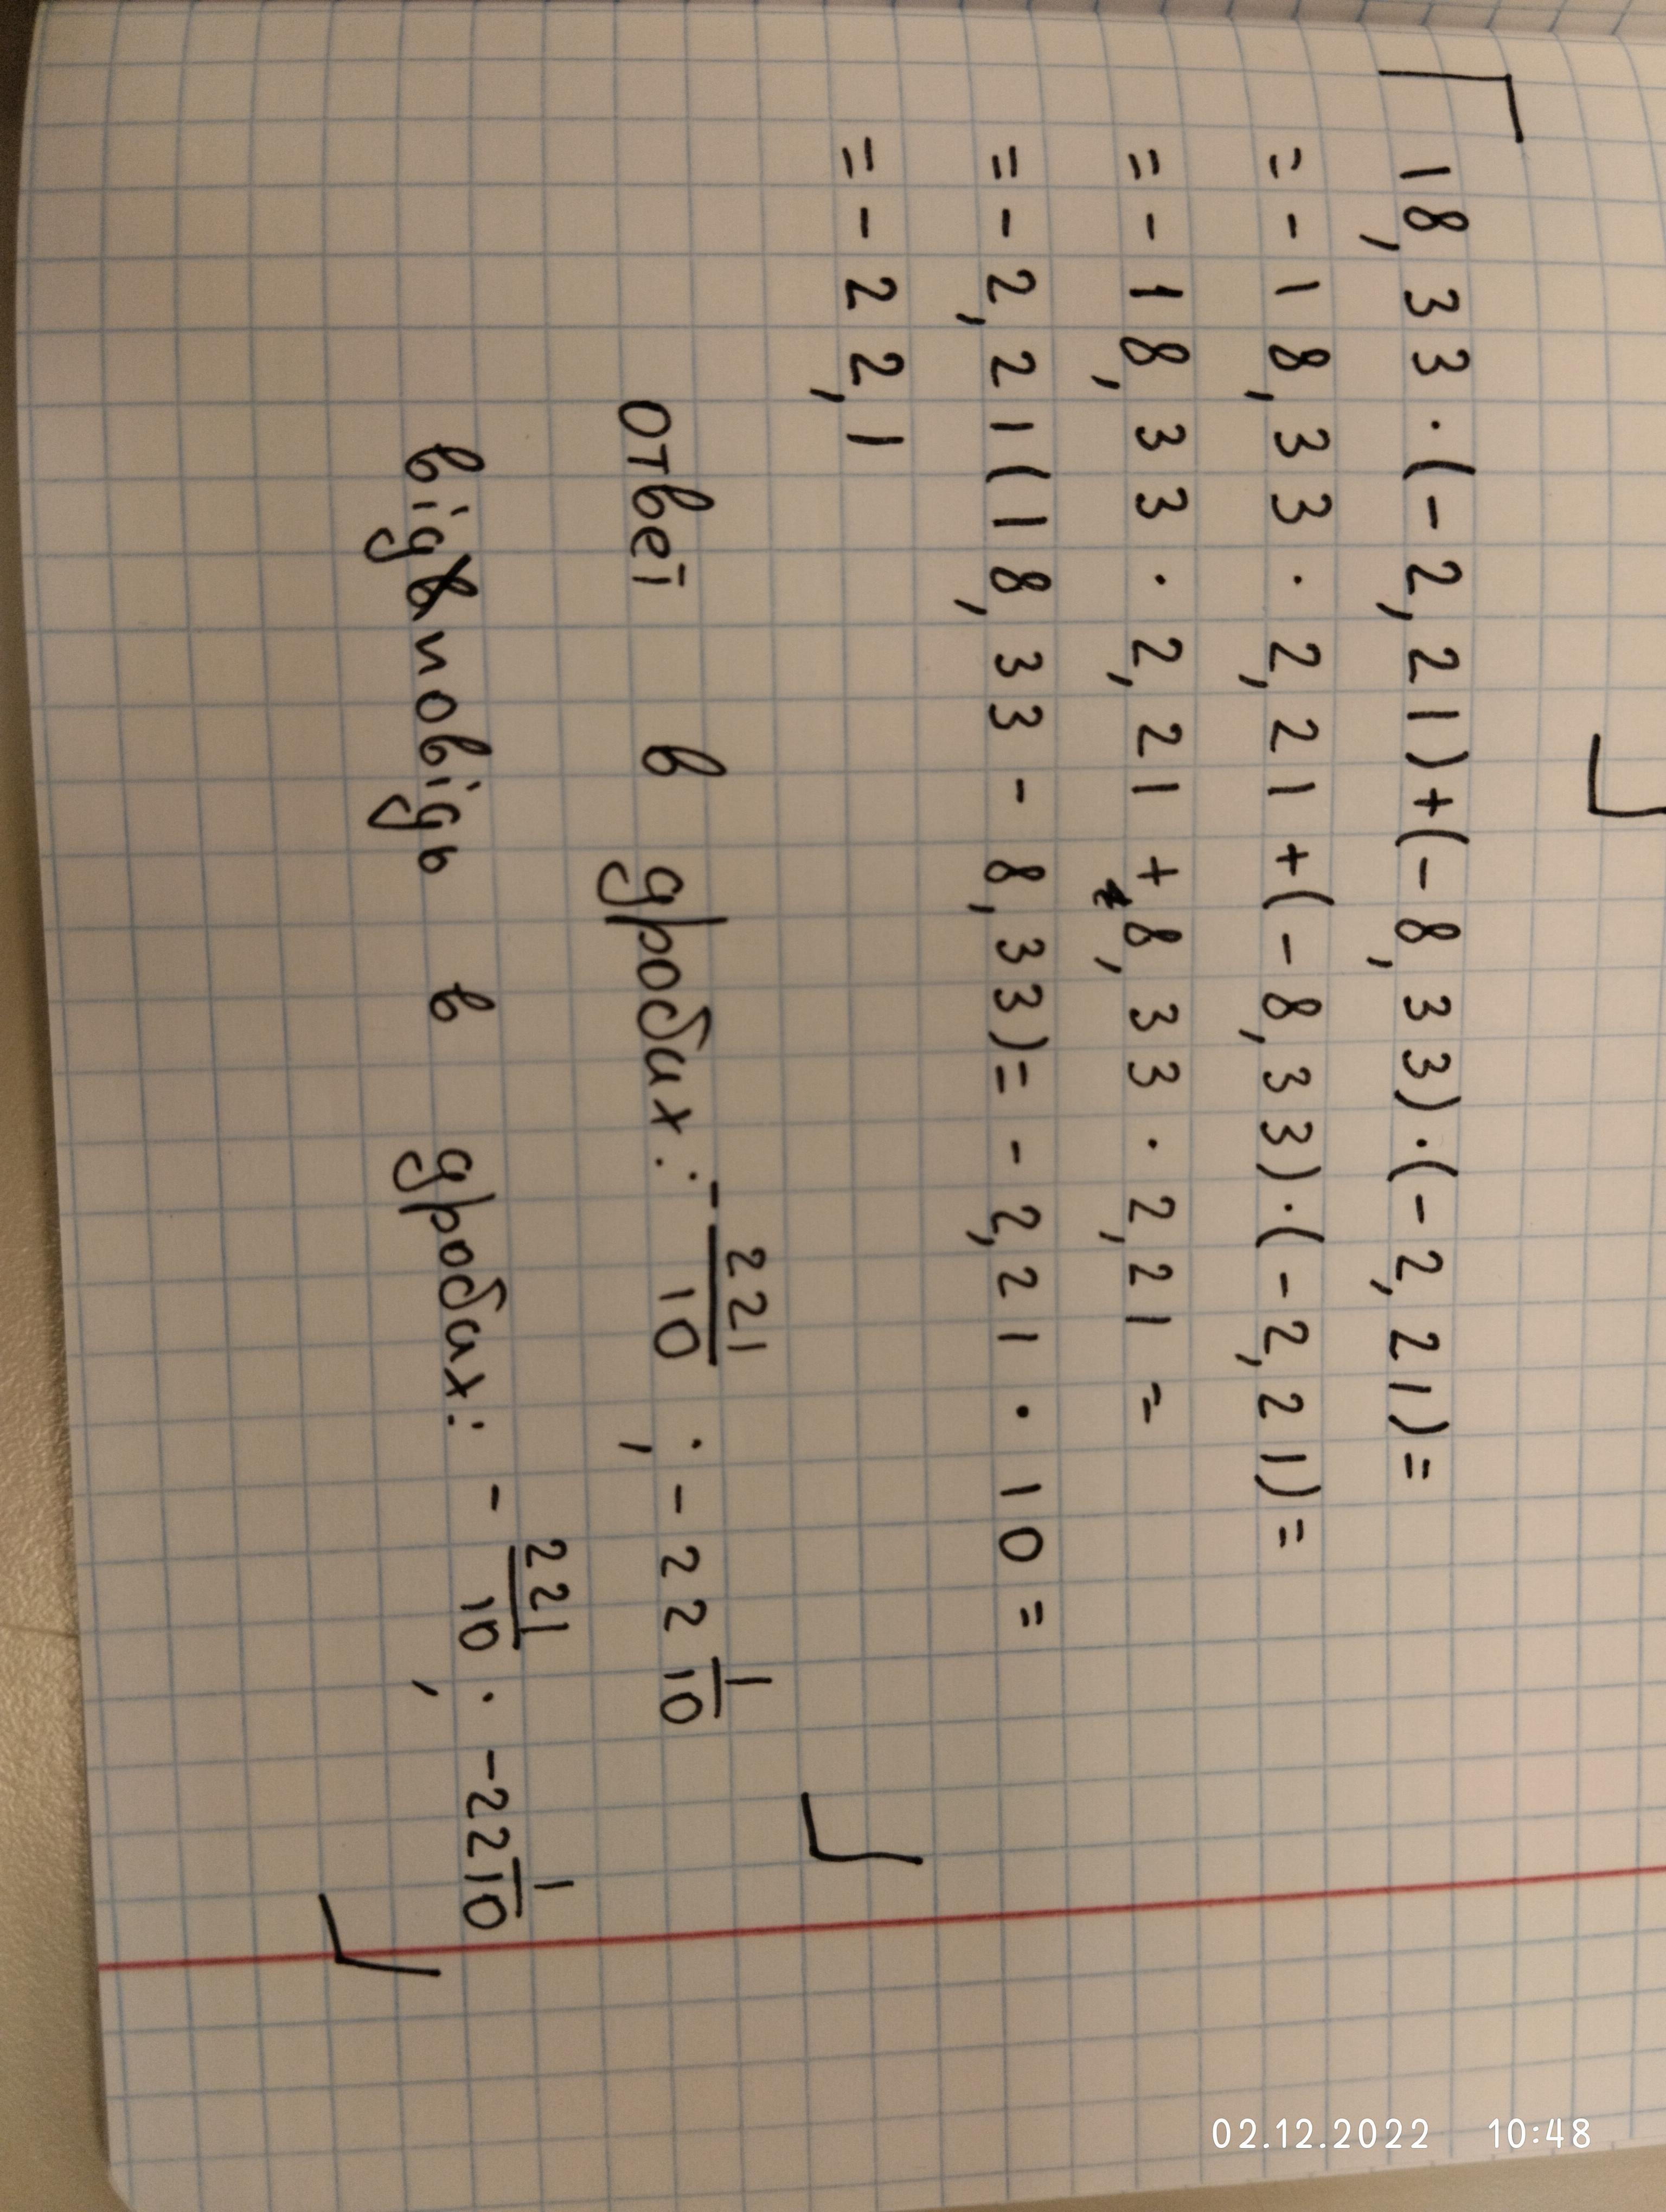 18,33 · (-2,21) + (-8,33) · (-2,21) =
= -18,33 · 2,21 + (-8,33) · (-2,21) =
= -18,33 · 2,21 + 8,33 · 2,21 =
= -2,21(18,33 - 8,33) = -2,21 · 10 =
= -22,1
ответ в дробях: -221/10 ; -22 1/10
відповідь в дробах: -221/10 ; -22 1/10
02.12.2022 10:48